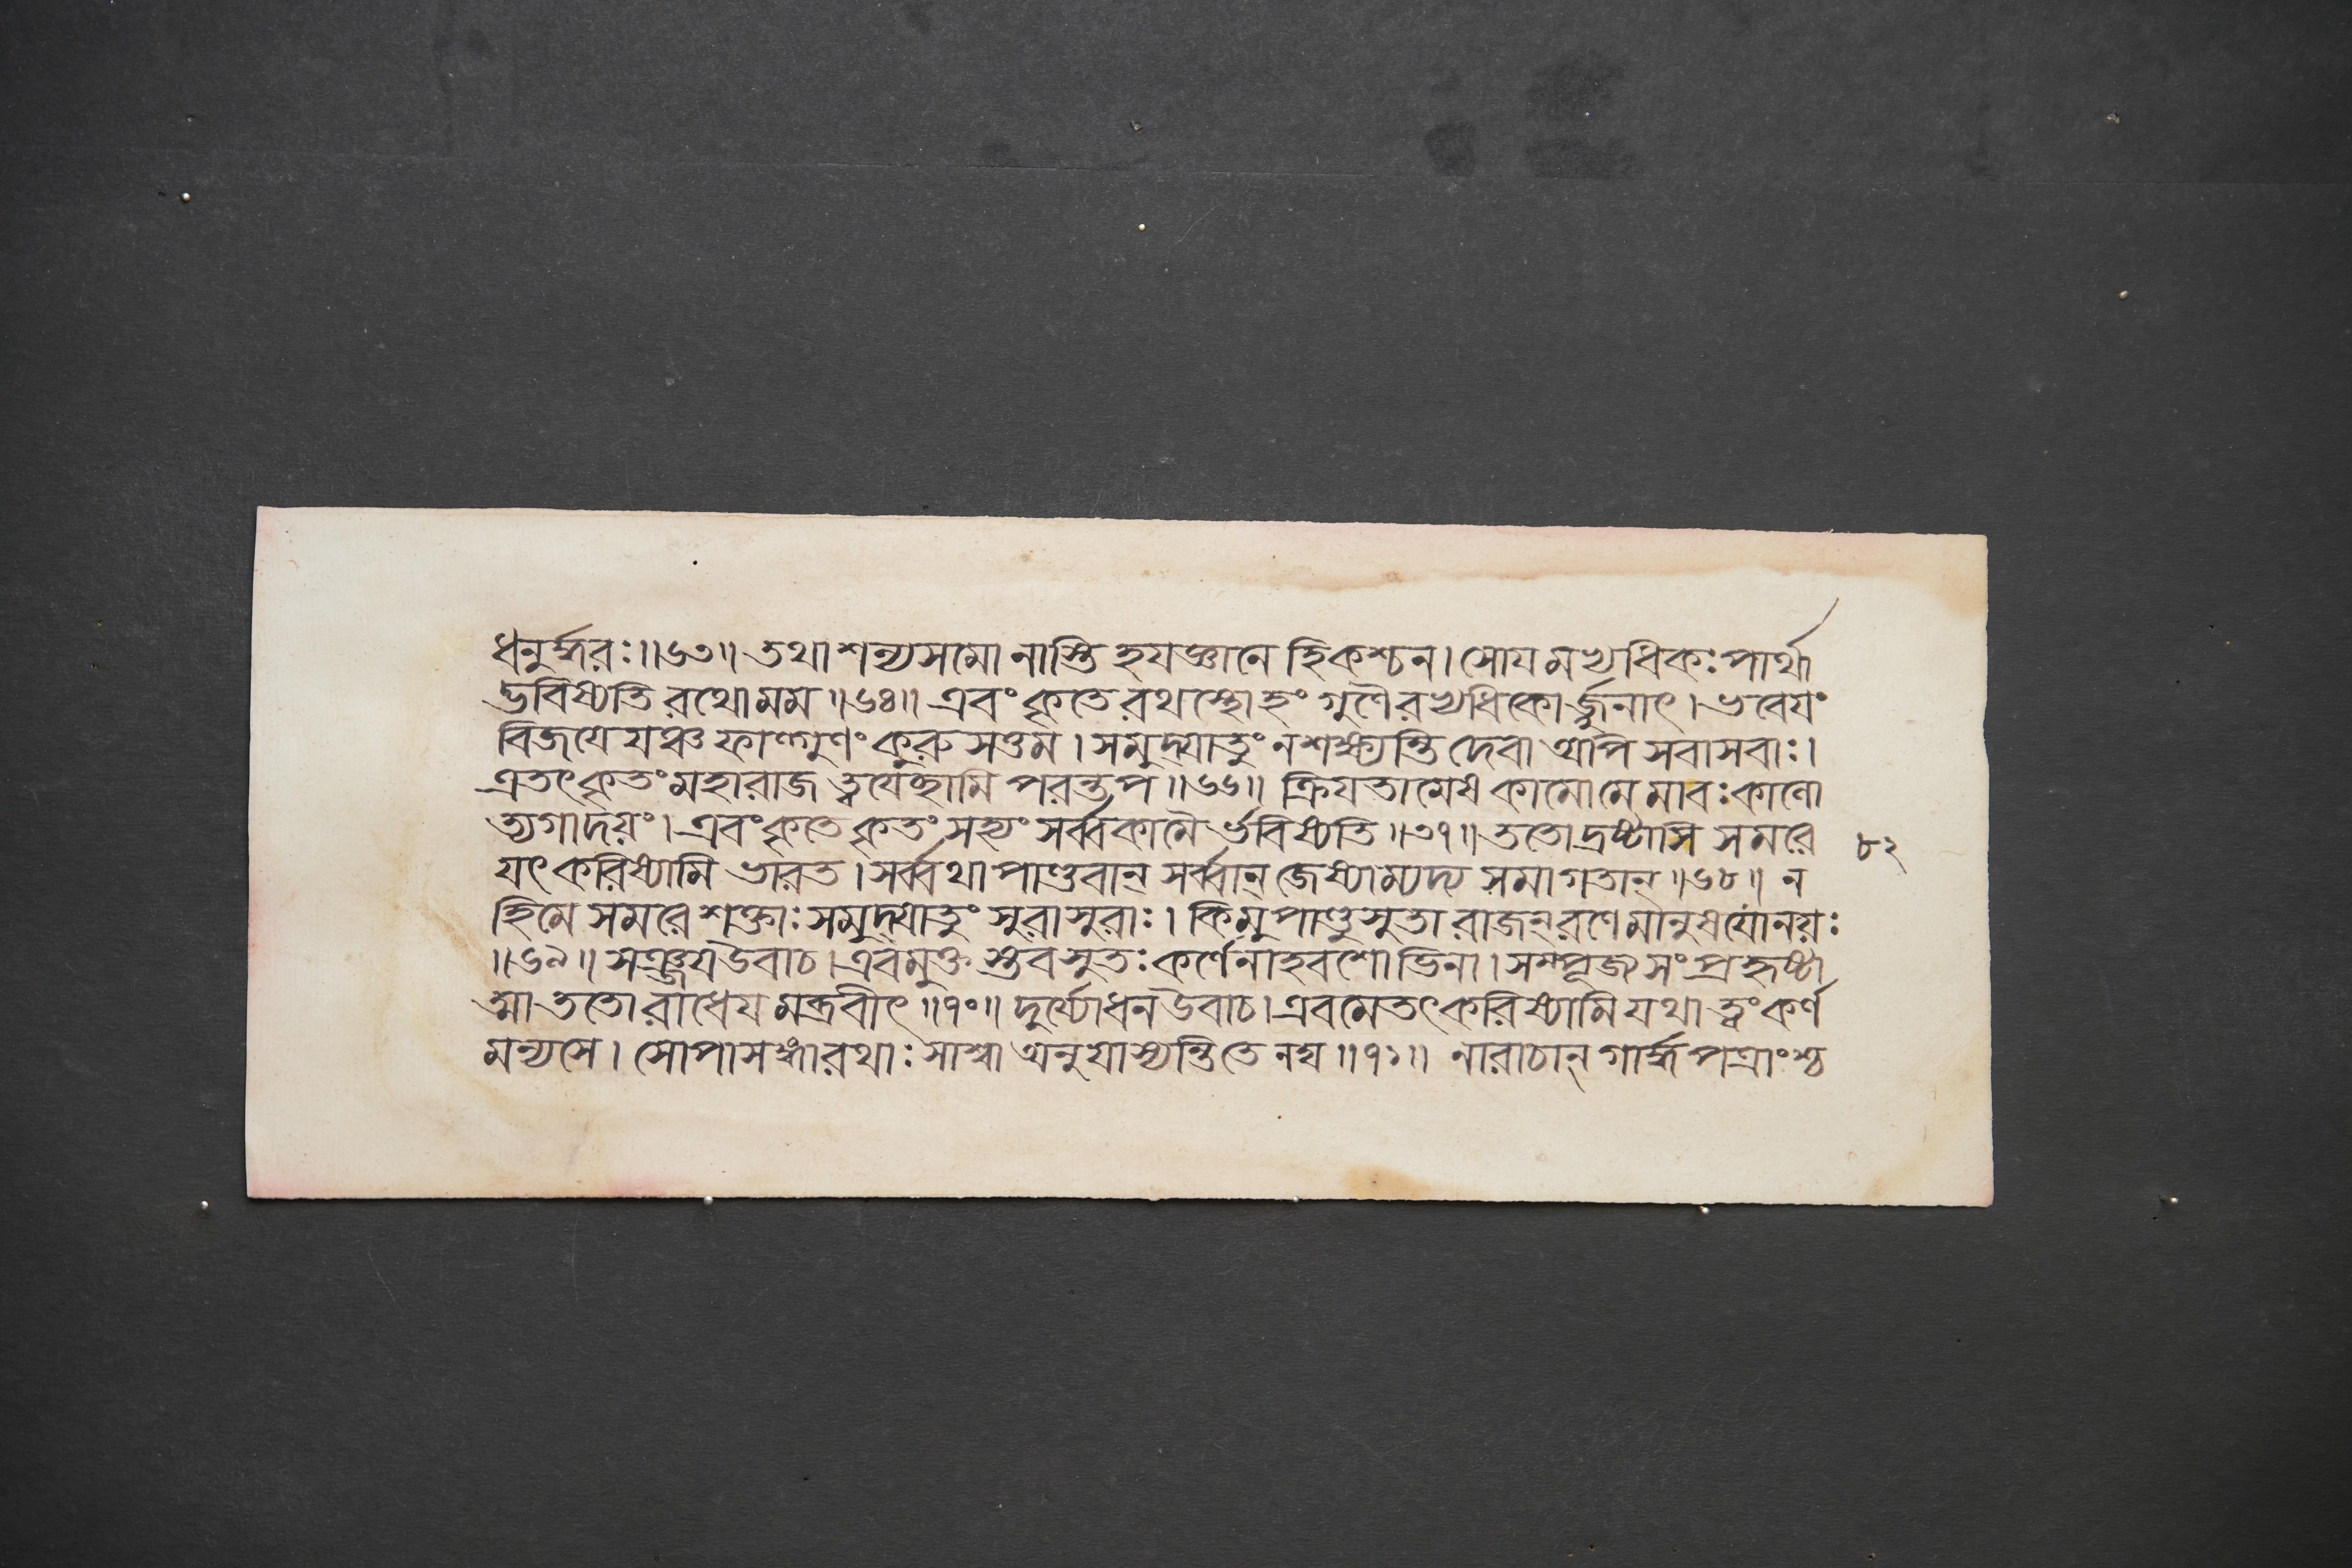 ধনুর্দ্ধরঃ॥৬৩॥ তথা শল্যসমো নাস্তি হযজ্ঞানে হি কশ্চন। সোযমভ্যধিকঃ পার্থা
দ্ভবিষ্যতি রথো মম॥৬৪॥ এবং কৃতে রথস্থোহং গুণৈরভ্যধিকোর্জ্জুনাৎ। ভবেযং
বিজযেযঞ্চ ফাল্গুণং কুরুসত্তম। সমুদ্যাতুং ন শক্ষ্যন্তি দেবা অপি সবাসবাঃ।
এতৎ কৃতং মহারাজ ত্বযেচ্ছামি পরন্তপ॥৬৬॥ ক্রিযতামেষ কামো মে মা বঃ কালো
ত্যগাদয়ং। এবং কৃতে কৃতং সহ্যং সর্ব্বকামৈর্ভবিষ্যতি॥৩৭॥ ততো দ্রষ্টাসি সমরে
৮২
যৎ করিষ্যামি ভারত। সর্ব্বথা পাণ্ডবান্ সর্ব্বান্ জেষ্যাম্যদ্য সমাগতান্॥৬৮॥ ন
হি মে সমরে শক্তাঃ সমুদ্যাতুং সুরাসুরাঃ। কিমু পাণ্ডুসুতা রাজন্ রণে মানুষযোনয়ঃ
॥৬৯॥ সঞ্জয উবাচ। এবমুক্তস্তব সুতঃ কর্ণেনাহবশোভিনা। সম্পূজ্য সংপ্রহৃষ্টা
ত্মা ততো রাধেযমব্রবীৎ॥৭০॥ দুর্য্যোধন উবাচ। এবমেতৎ করিষ্যামি যথা ত্বং কর্ণ
মন্যসে। সোপাসঙ্গা রথাঃ সাশ্বা অনুযাস্যন্তি তে নঘ॥৭১॥ নারাচান্ গার্দ্ধপত্রাংশ্চ